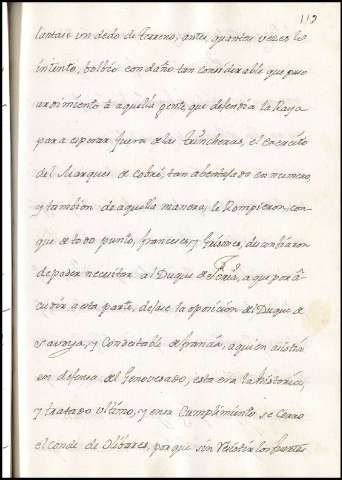 119
lantase un dedo de terreno, antes quantas vezes lo
intento, bolbio con daño tan considerable que puso
ardimiento à aquella gente, que defendia la Raya
para esperar fuera de las trincheras, el exercito
del Marques de Cobrè, tan abentajado en numero
y tambien de aquella manera, le Rompieron, con
que de todo punto, franceses, y Grisones, desconfiaron
de poder necesitar al Duque de Feria, a que por a
cudir a esta parte, dejase la oposicion del Duque de
Savoya, y Condestable de francia, a quien asistia
en defensa del Genovesado, esta era la historia,
y tratado ultimo, y en su Cumplimiento se cerro
el conde de Olibares, porque sin Restituir los fuertes